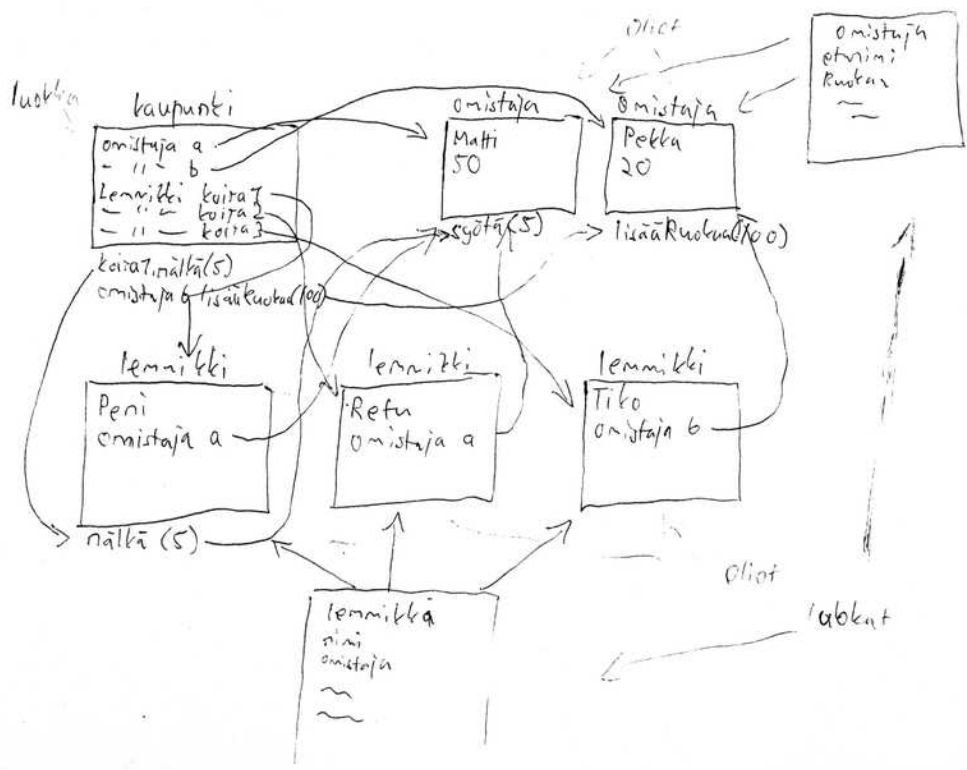 oliot
omistaja
etunimi
Ruokaa
luokka
kaupunki
omistaja a
- " - b
Lemmikki koira1
- " - koira2
- " - koira3
koira1.nälkä(5)
omistaja b lisääRuokaa(100)
omistaja
Matti
50
syötä(5)
Omistaja
Pekka
20
lisääRuokaa(100)
lemmikki
Peni
omistaja a
nälkä (5)
lemmikki
Retu
omistaja a
lemmikki
Tiko
omistaja b
oliot
luokat
lemmikkä
nimi
omistaja